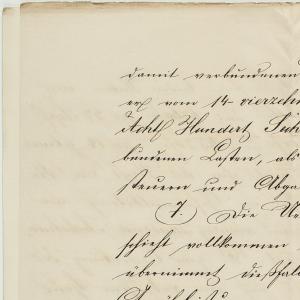 damit verbundenen
vom 14 vierzehn
Acht Hundert
bundenen Lasten, als
steuern und Abga
7. Die
schieht vollkommen
übernimmt dießfal